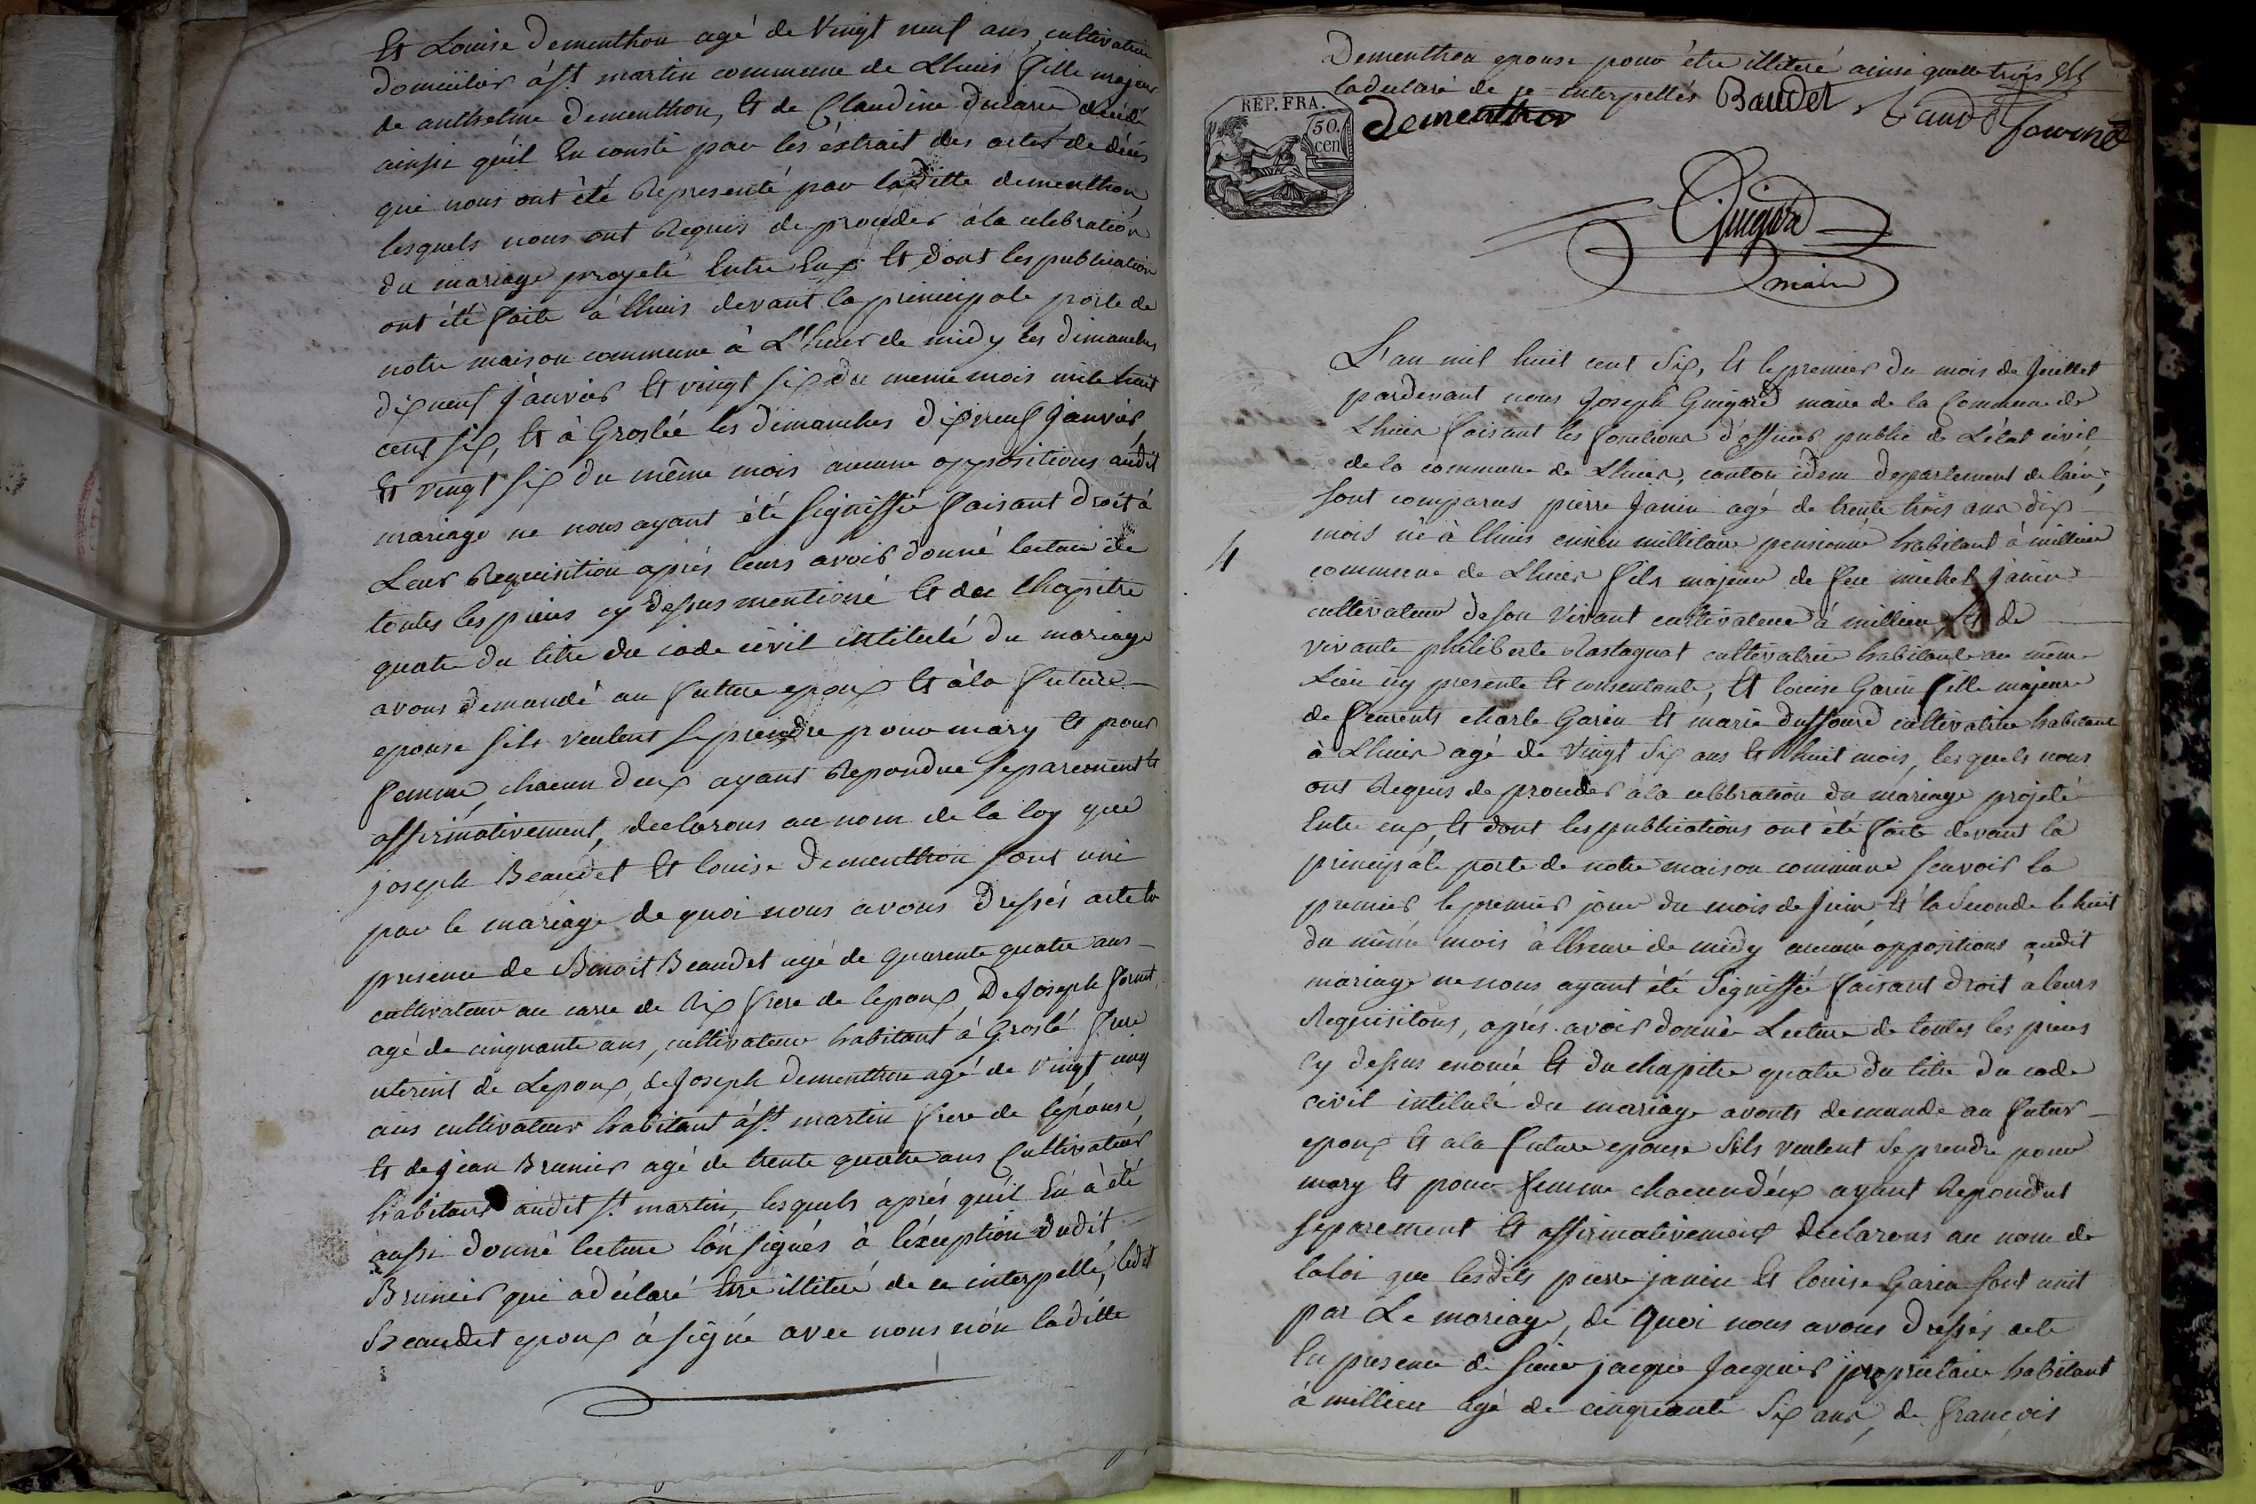 Et Louise Dementhon agé de Vingt neuf ans, cultivatrice
domiciliés à st martin commune de Lhuis fille majeur
de anthelme Dementhon, Et de Claudine Ducarre décédé
ainssi quil En conste par les éxtrait des actes de décés
qui nous ont été Representé par laditte dementhon,
lesquels nous ont Requis de proceder à la celebration
du mariage projeté Entre Eux Et dont les publication
ont été faite à Lhuis devant la principale porte de
notre maison commune à L'heur de midy les dimanches
dix neuf janvier Et vingt six du meme mois mil huit
cent six, Et à Groslée les dimanches dix neuf janvier
Et vingt six du même mois aucune oppositions audit
mariage ne nous ayant été signiffié faisant Droit à
Leur Requisition aprés leurs avoir donné lecture de
toutes les pieces cy dessus mentionné Et du Chapitre
quatre du titre du code civil intitulé Du mariage
avons demandé au future epoux Et à la future
epouse sils veulent se prendre pour mary Et pour
femme, chacun deux ayant Repondue separement Et
affirmativement, declarons au nom de la loy que
joseph Beaudet Et louise Dementhon sont uni
par le mariage de quoi nous avons Dressés acte En
presence de Benoit Beaudet agé de quarente quatre ans
cultivateur au carre de Rix frere de lepoux, De Joseph fornet
agé de cinquante ans, cultivateur habitant à Groslé frere
uterint de Lepoux, de Joseph Dementhon agé de Vingt cinq
ans cultivateur habitant à st martin frere de lépouse
Et de jean Brunier agé de trente quatre ans Cultivateur
habitant audit st martin, lesquels aprés quil En à été
aussi donné lecture lon signés à léxception dudit
Brunier qui a déclaré Etre illiteré de ce interpellé, ledit
Beaudet epoux à signé avec nous nón laditte
Dementhon epouse pour être illiteré ainsi quelle
ladeclaré de ce interpellés Baudet
Dementhon
REP. FRA.
50.
cen
Guigard
maire
L'an mil huit cent six, Et le premier du mois de Juillet
pardevant nous Joseph Guigard maire de la Commune de
Lhuis faisant les fonctions d'officier public de L'état civil
de la commune de Lhuis, canton idem departement de lain,
sont comparus pierre Janin agé de trente trois ans dix
4
mois né à Lhuis encien millitaire pensionné habitant à millieu
commune de Lhuis fils majeur de feu michel Janin
cultivateur de son Vivant cultivateur à millieu, Et de
vivante philiberte Rastagnat cultivatrice habitante au même
Lieu icy presente Et consentante, Et louise Garin fille majeure
de feurents charle Garin Et marie Duffourd cultivatrice habitant
à Lhuis agé de Vingt six ans Et huit mois, lesquels nous
ont Requis de proceder à la celebration du mariage projeté
Entre eux, Et dont les publications ont été faite devant la
principale porte de notre maison commune scavoir la
premier le premier jour du mois de juin Et la seconde le huit
du même mois à lheure de midy aucune oppositions audit
mariage ne nous ayant été Signiffié faisant Droit à leurs
Requisitons, aprés avoir donné Lecture de toutes les pieces
cy dessus enoncé Et du chapitre quatre du titre Du code
civil intitulé du mariage avonts demande au futur
epoux Et a la future epouse sils veulent se prendre pour
mary Et pour femme chacun deux ayant Repondut
separement Et affirmativement declarons au nom de
la loi que lesdits pierre janin Et louise Garin sont unit
par Le mariage, de quoi nous avons Dressés acte
En presence de sieur jacque Jacquier propriétaire habitant
à millieu agé de cinquante six ans, de françois